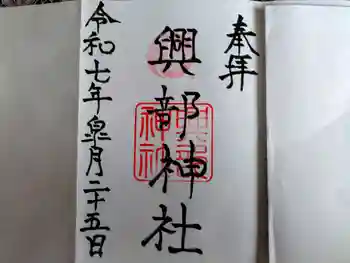 奉拝
興部神社
令和七年皐月二十五日
興部
神社